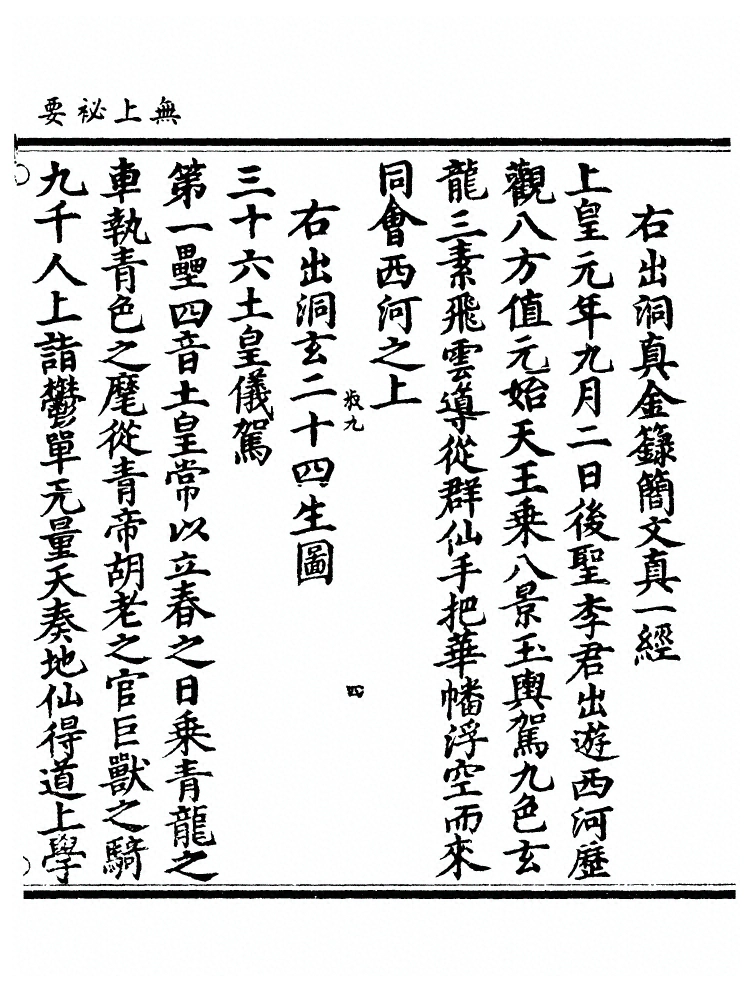 無上祕要
右出洞真金籙簡文真一經
上皇元年九月二日後聖李君出遊西河歷
觀八方值元始天王乘八景玉輿駕九色玄
龍三素飛雲導從群仙手把華幡浮空而來
同會西河之上
叔九
四
右出洞玄二十四生圖
三十六土皇儀駕
第一壘四音土皇常以立春之日乘青龍之
車執青色之麾從青帝胡老之官巨獸之騎
九千人上詣鬱單无量天奏地仙得道上學